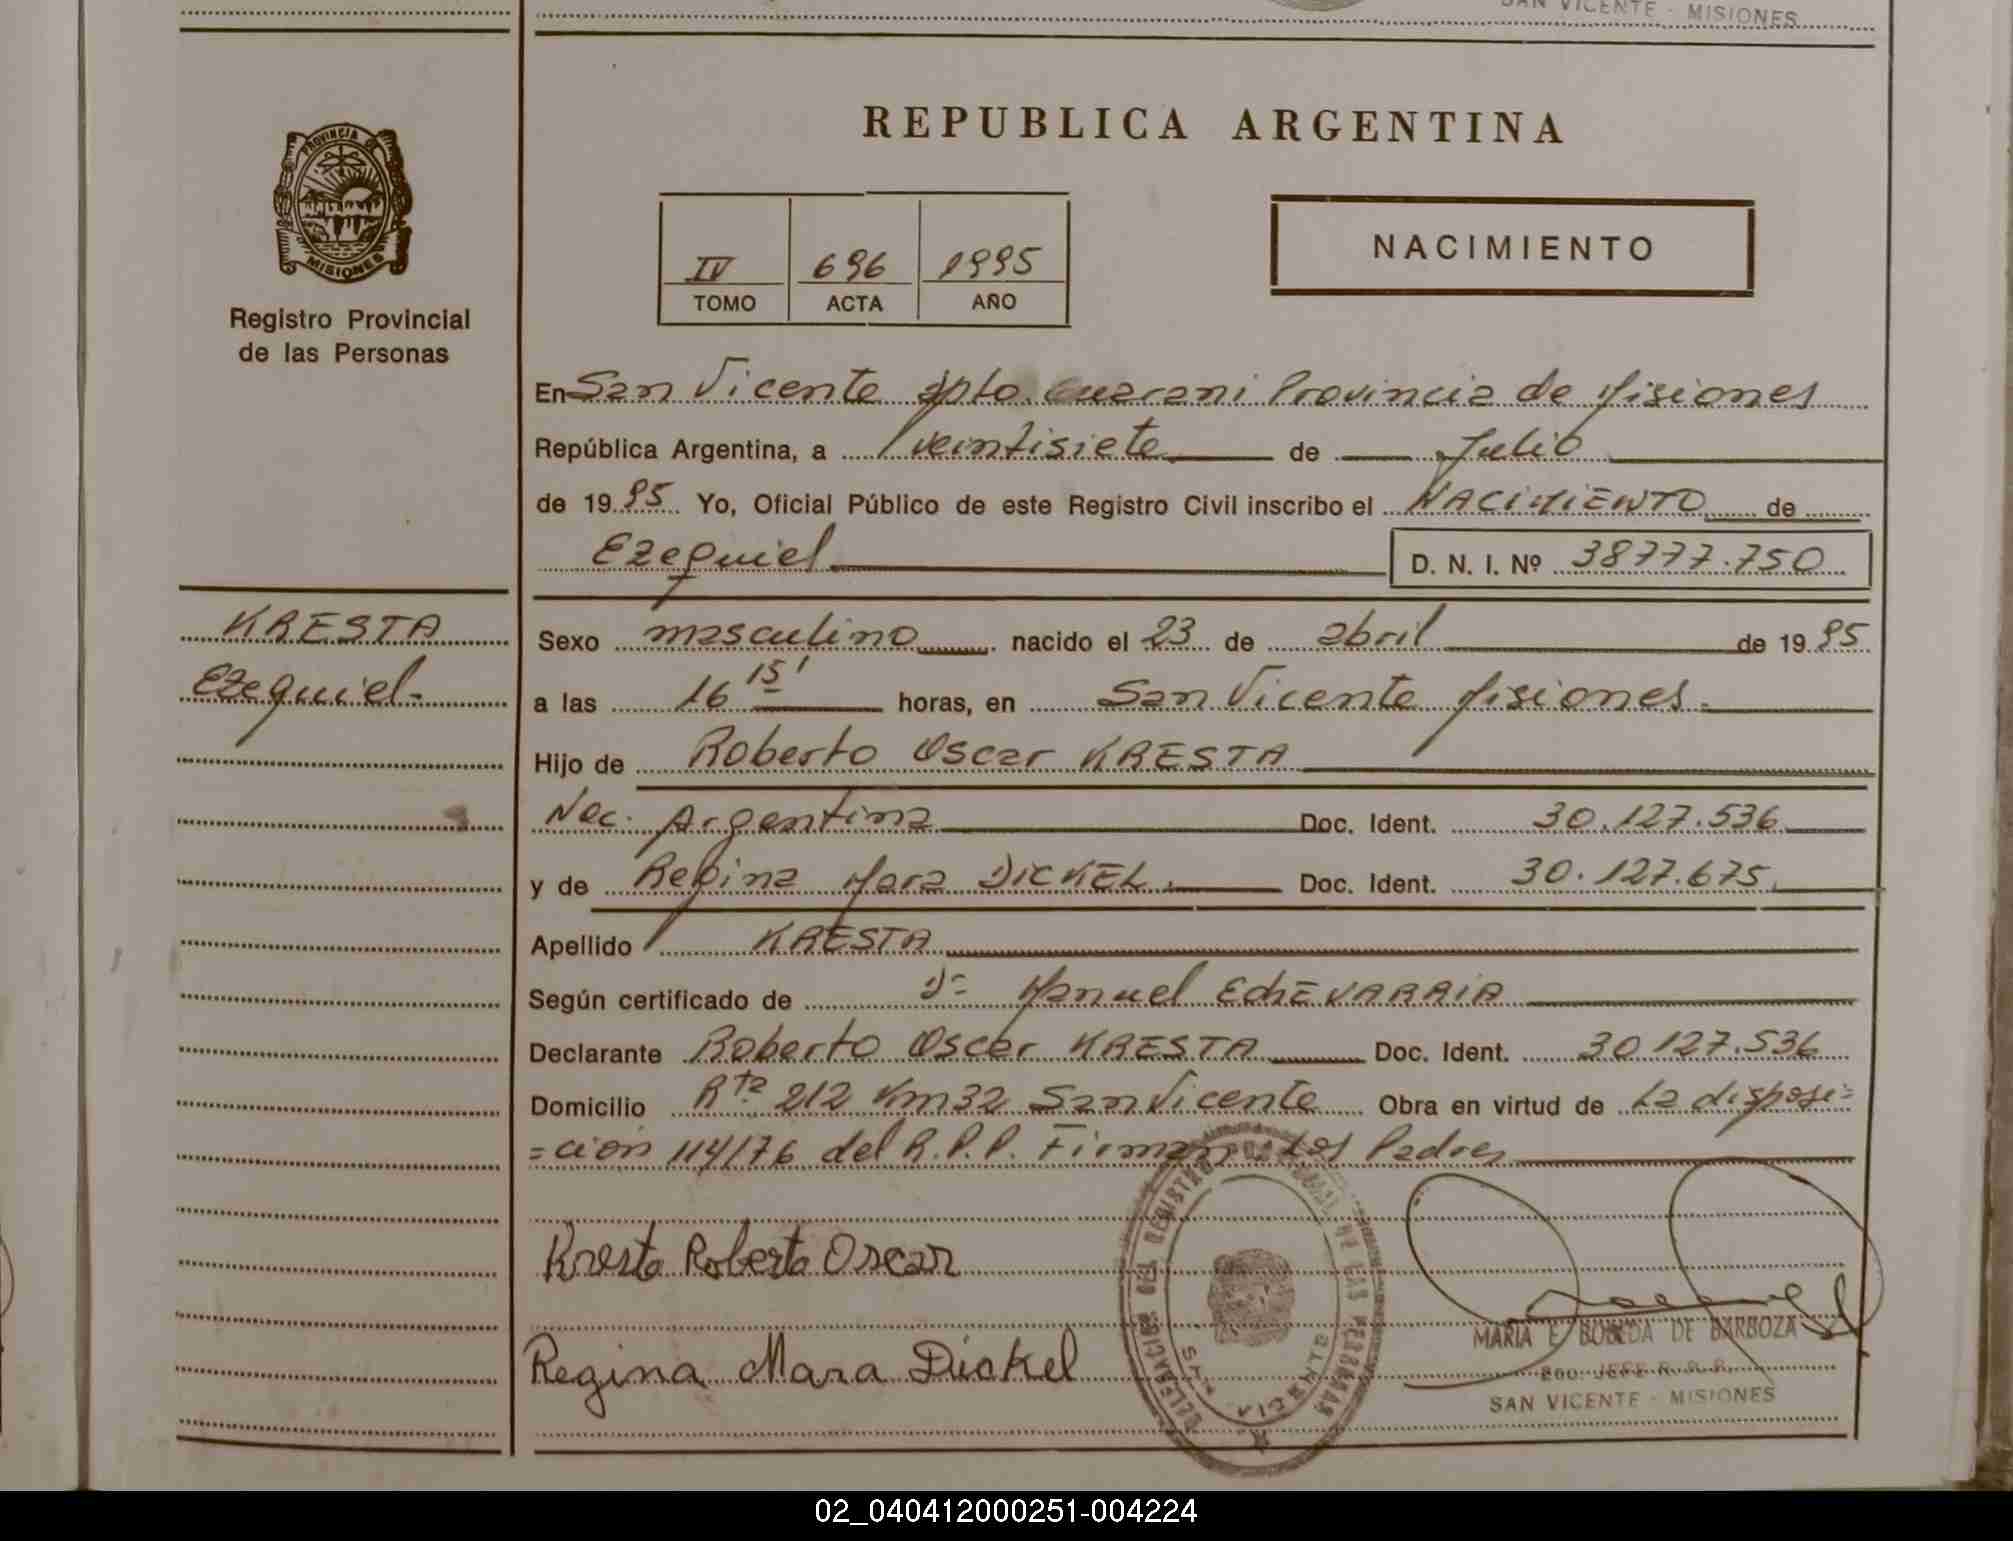 SAN VICENTE - MISIONES
REPUBLICA ARGENTINA
PROVINCIA DE
MISIONES
Registro Provincial
de las Personas
IV 696 1995
TOMO ACTA AÑO
NACIMIENTO
En San Vicente Dpto. Guarani Provincia de Misiones
República Argentina, a veintisiete de Julio
de 1995 Yo, Oficial Público de este Registro Civil inscribo el NACIMIENTO de
Ezequiel D. N. I. Nº 38777.750
KRESTA
Ezequiel.-
Sexo masculino nacido el 23 de abril de 1995
a las 16 15' horas, en San Vicente Misiones.
Hijo de Roberto Oscar KRESTA
Nac. Argentina Doc. Ident. 30.127.536
y de Regina Mara DICKEL. Doc. Ident. 30.127.675
Apellido KRESTA
Según certificado de Dr Manuel EchEVARRIA
Declarante Roberto Oscar KRESTA Doc. Ident. 30 127.536
Domicilio Rta 212 Km32 San Vicente Obra en virtud de La disposi=
=ción 114/76 del R.P.P. Firman Los Padres
Kresta Roberto Oscar
Regina Mara Dickel
DELEGACION DEL REGISTRO PROVINCIAL DE LAS PERSONAS
SAN VICENTE
MARIA E. BOBEDA DE BARBOZA
2DO. JEFE R. P. P.
SAN VICENTE - MISIONES
02_040412000251-004224